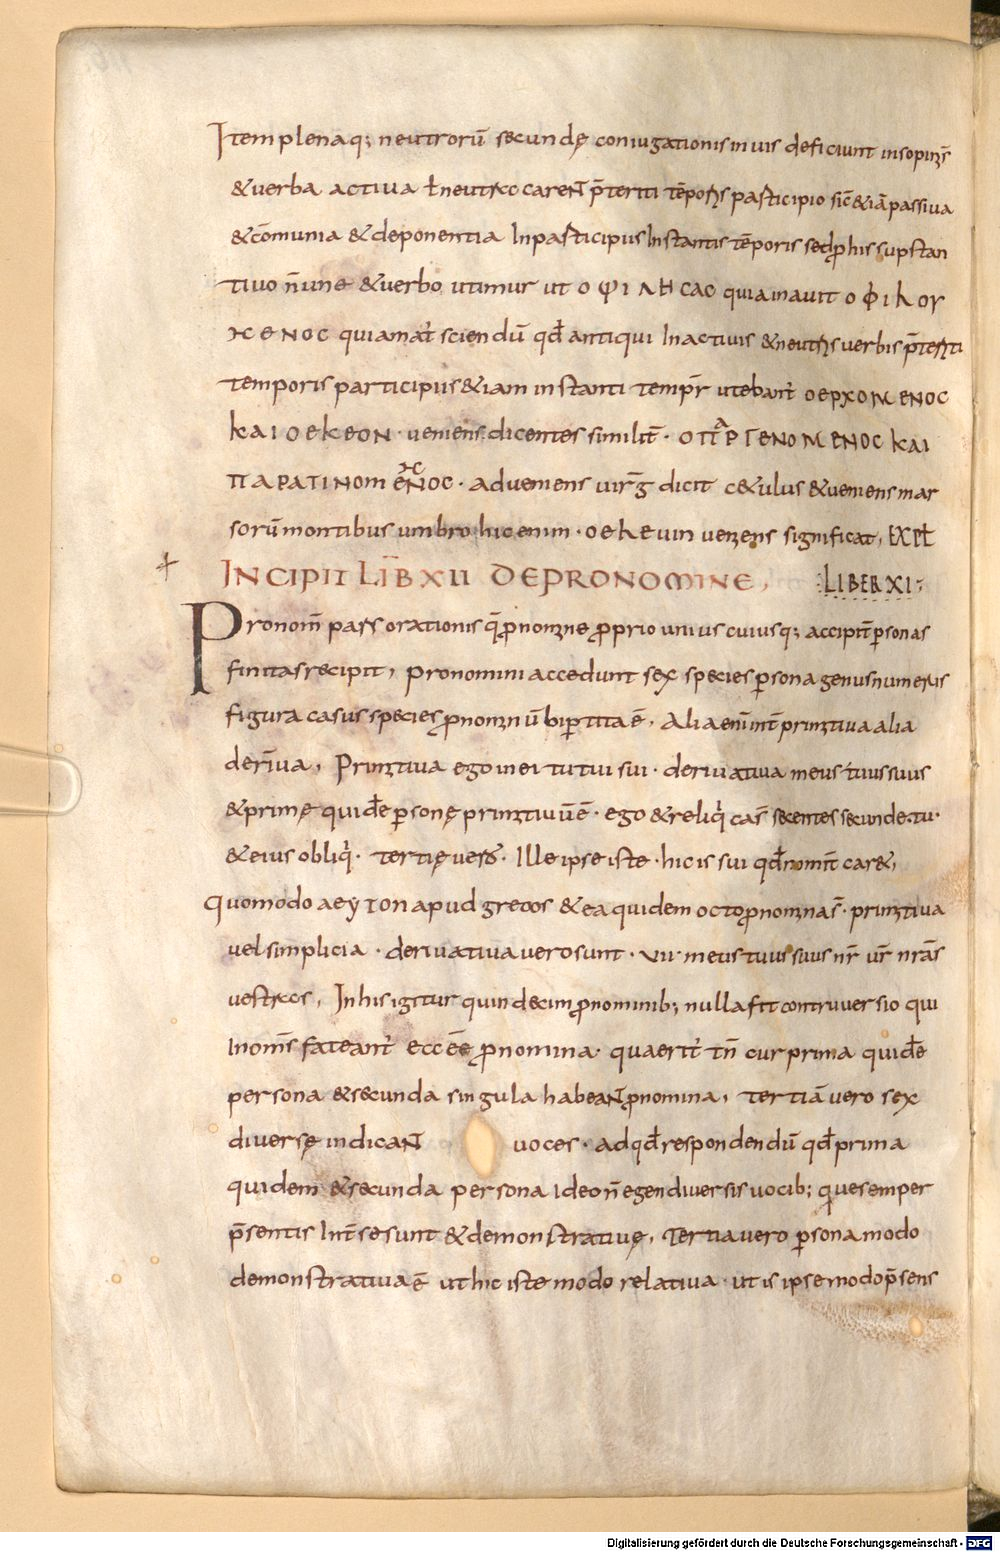 Item plenaq; neutrorū secundę coniugationis in uis deficiunt
& uerba actiua ł neutro p̄teriti participio passiua
& cōmunia & deponentia In participiis Instantis tēporis sed p his supstan
tiuo & uerbo utimur ut ο φιλησαс quiamauit ο φιλογ
μενοс quiamat sciendū qđ antiqui In actiuis & uerbis
temporis participiis & iam in stanti utebant οερχομενοс
και οεκεον · ueniens dicentes similit̄ · οπαργενομενοс και
παρατινομενοс · adueniens uirḡ dicit c&ulus & ueniens mar
sorū montibus umbro hic enim · οεκευιν ueniens significat, EXPŁ
INCIPIT LIB XII DE PRONOMINE, :LIBER XI:
Pronom̄ pars orationis q̄ proprio unius cuiusq; accipit personas
finitas recipit, pronomini accedunt sex species persona genus numerus
figura casus species bipertita ē, alia alia
deriua, Primitiua ego mei tu tui sui · deriuatiua meus tuus suus
& primę quidē personę primitiuū ē · ego & reliqi secunde · tu ·
& eius obliqi · tertię uero · Ille ipse iste · hic is sui car&,
quomodo apud grecos & ea quidem octo primitiua
uel simplicia · deriuatiua uero sunt · vii · meus tuus suus nr̄ ur̄ nrās
uestras, In his igitur quindecim pronominib; nulla fit controuersio qui
fateant pronomina · quaerit tn̄ cur prima quidē
persona & secunda singula habeant pronomina, tertiā uero sex
diuersę indicant uoces · ad qđ respondendū qđ prima
quidem & secunda persona ideo n̄ egen diuersis uocib; que semper
p̄sentis Int̄ se sunt & demonstratiuę, Tertia uero persona modo
demonstratiua ē ut hic iste modo relatiua · ut is ipse modo p̄sens
Digitalisierung gefördert durch die Deutsche Forschungsgemeinschaft - DFG